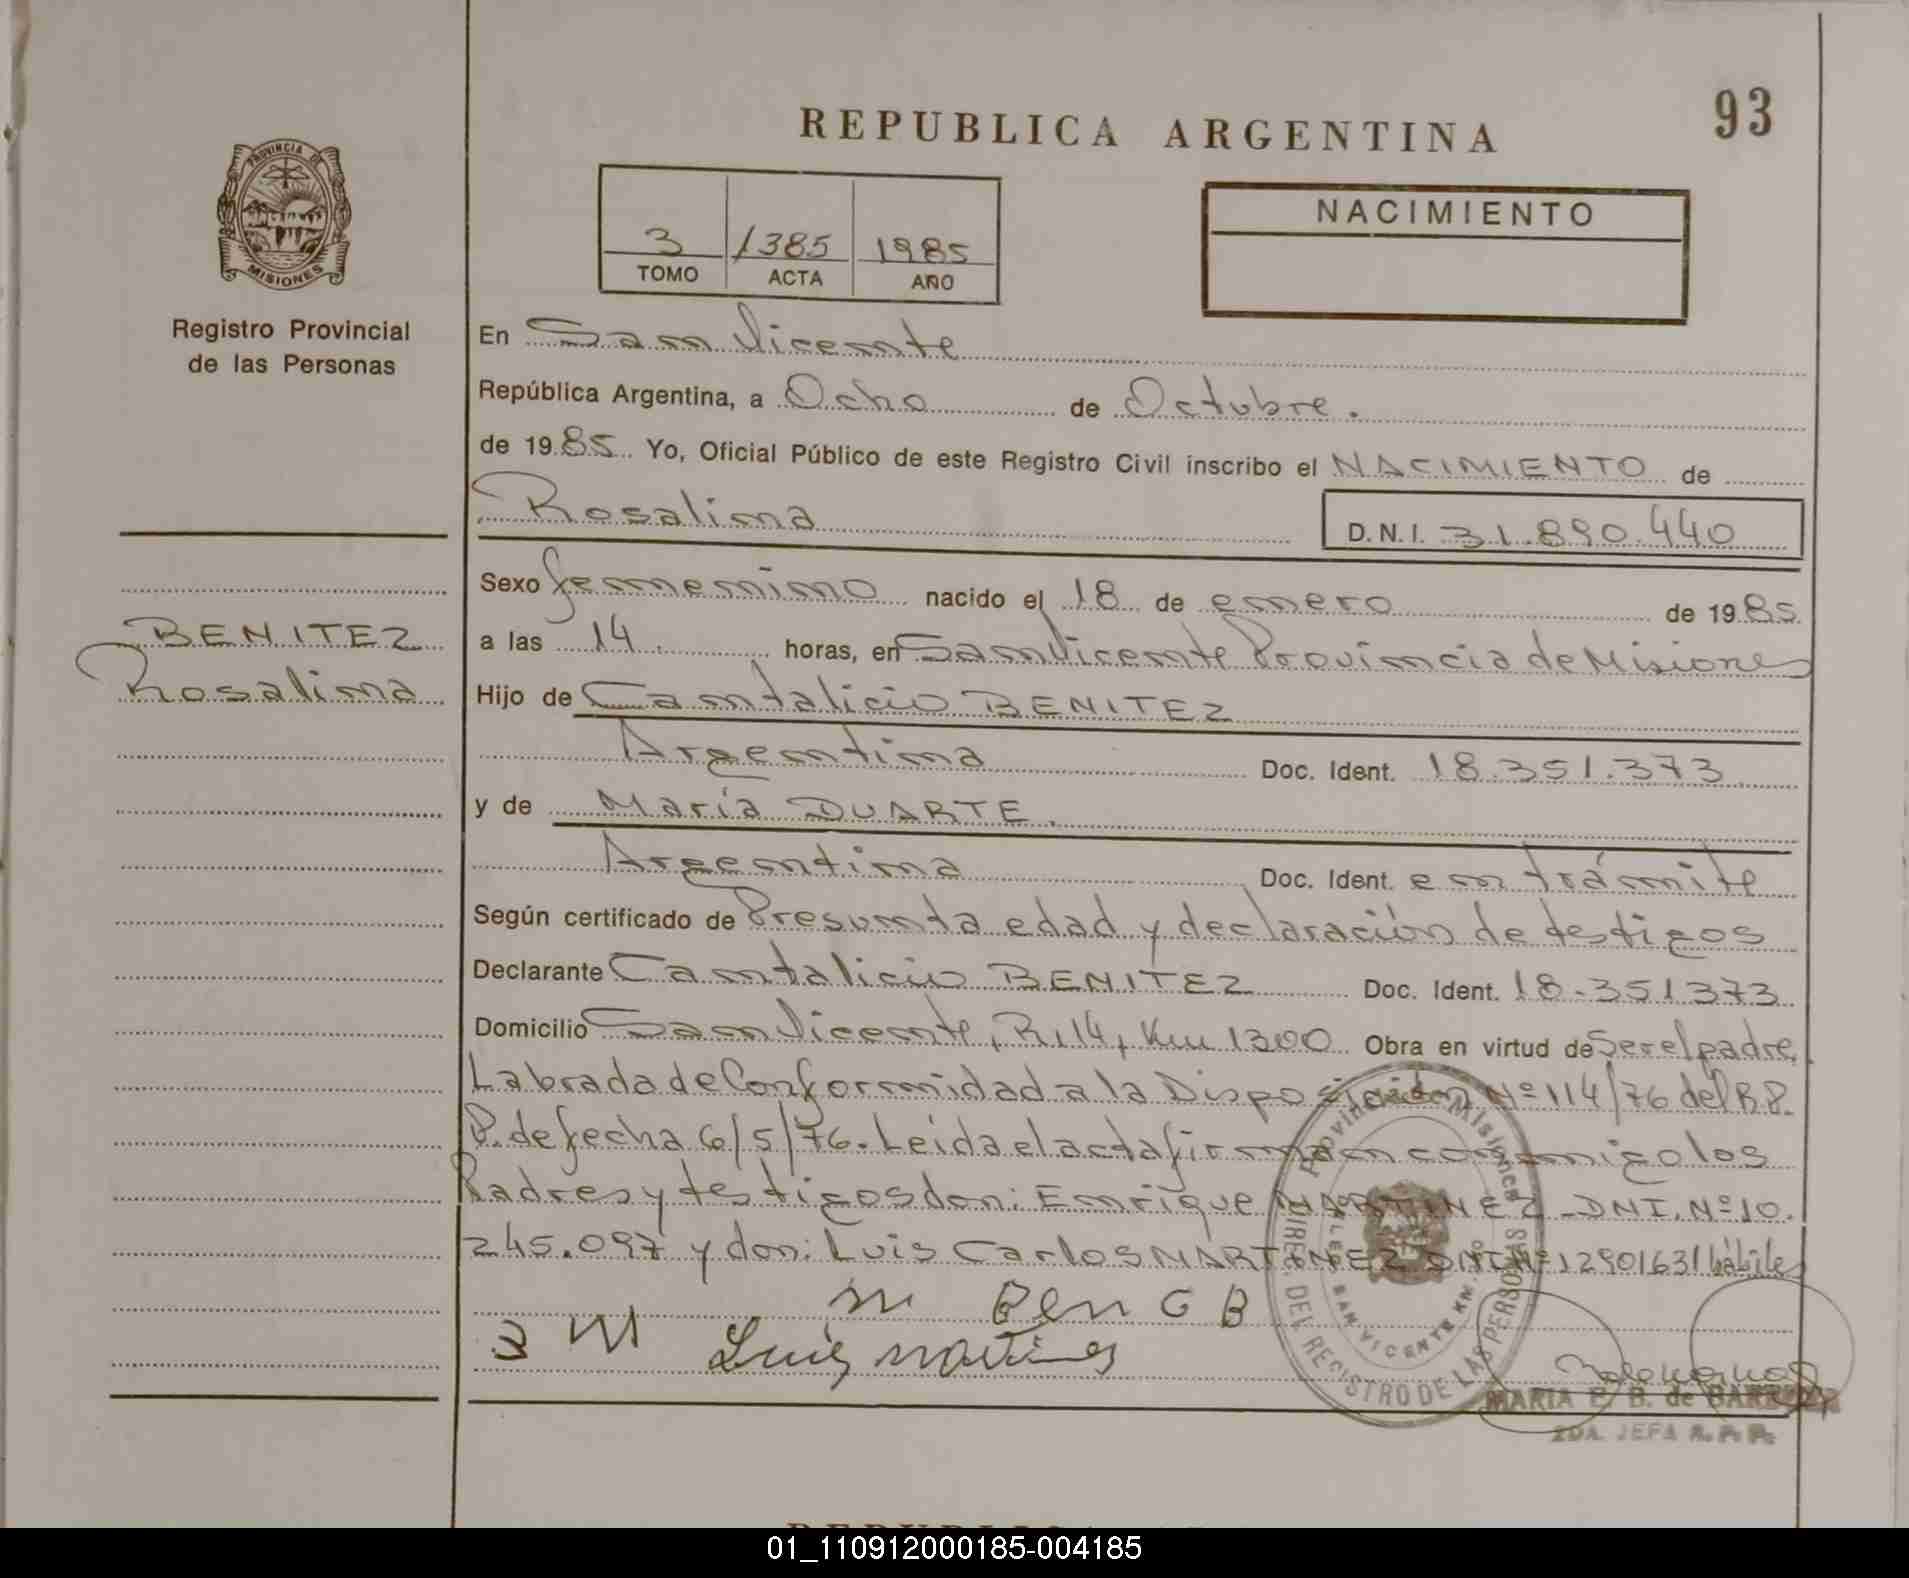 93
REPUBLICA ARGENTINA
PROVINCIA DE
MISIONES
Registro Provincial
de las Personas
3 1385 1985
TOMO ACTA AÑO
NACIMIENTO
En San Vicente
República Argentina, a Ocho de Octubre.
de 1985. Yo, Oficial Público de este Registro Civil inscribo el NACIMIENTO de
Rosalina
D.N.I. 31.890.440
BENITEZ
Rosalina
Sexo femenino nacido el 18 de enero de 1985.
a las 14. horas, en San Vicente Provincia de Misiones
Hijo de Cantalicio BENITEZ
Argentina Doc. Ident. 18.351.373
y de María DUARTE.
Argentina Doc. Ident. en trámite
Según certificado de Presunta edad y declaración de testigos
Declarante Cantalicio BENITEZ Doc. Ident. 18.351373
Domicilio San Vicente, R. 14, Km 1300 Obra en virtud de Ser el padre.
Labrada de Conformidad a la Disposición Nº 114/76 del R.P.
P. de fecha 6/5/76. Leída el acta firman conmigo los
Padres y testigos don: Enrique MARTINEZ - DNI. Nº 10.
245.097 y don: Luis Carlos MARTINEZ DNI Nº 12901631 hábiles
Luis
Provincia Misiones
DIREC. DEL REGISTRO DE LAS PERSONAS
SAN VICENTE KM.
MARIA E. B. de
2DA. JEFA R. P. P.
01_110912000185-004185